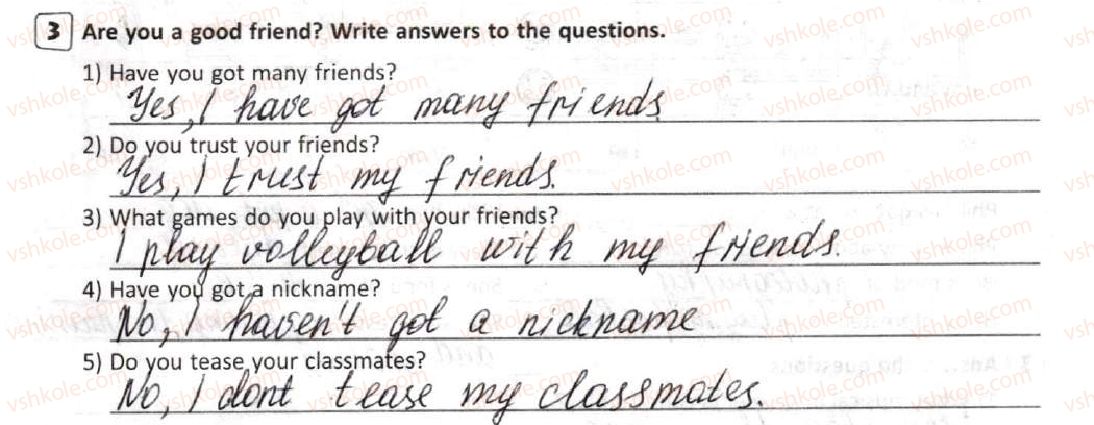 3 Are you a good friend? Write answers to the questions.
1) Have you got many friends?
Yes, I have got many friends.
2) Do you trust your friends?
Yes, I trust my friends.
3) What games do you play with your friends?
I play volleyball with my friends.
4) Have you got a nickname?
No, I haven't got a nickname
5) Do you tease your classmates?
No, I dont tease my classmates.